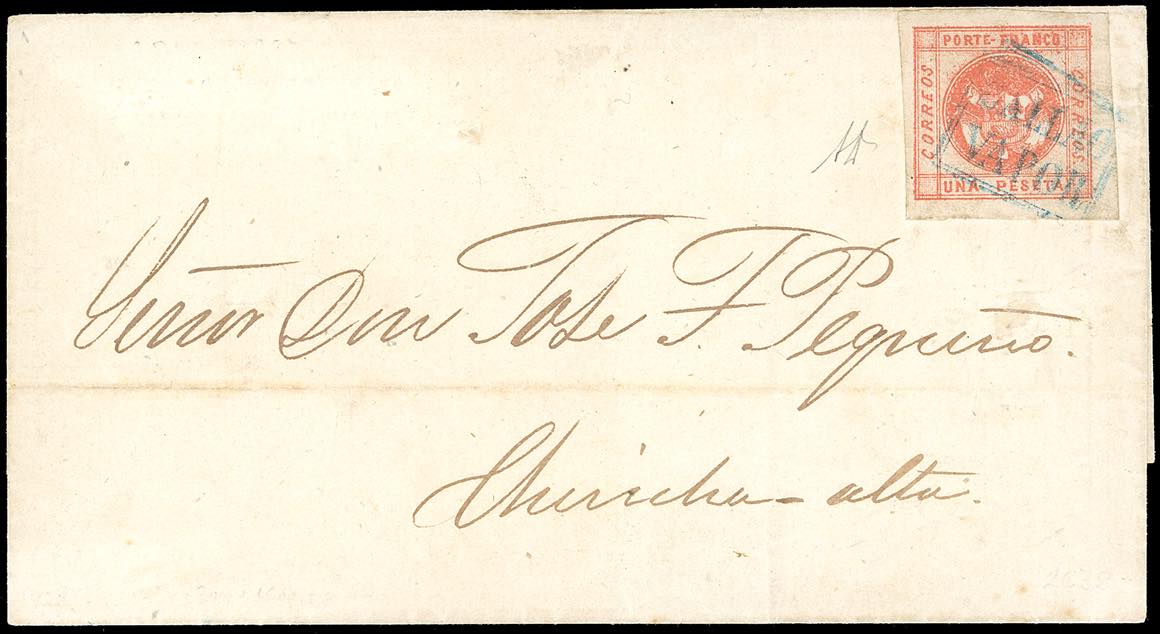 PORTE-FRANCO
CORREOS
CORREOS
UNA PESETA
CALLAO
VAPOR
Señor Don Jose F. Pequeño.
Chincha-alta.